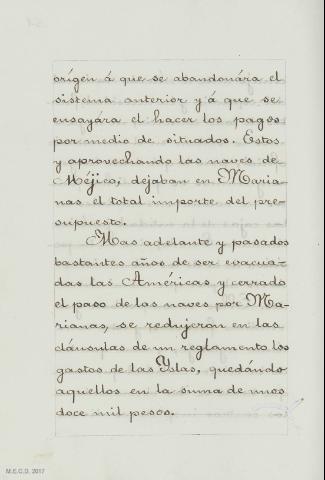 orígen á que se abandonára el
sistema anterior y á que se
ensayára el hacer los pagos
por medio de situados. Estos
y aprovechando las naves de
Méjico, dejaban en Maria-
nas el total importe del pre-
supuesto.
Mas adelante y pasados
bastantes años de ser evacua-
das las Américas y cerrado
el paso de las naves por Ma-
rianas, se redujeron en las
cláusulas de un reglamento los
gastos de las Yslas, quedándo
aquellos en la suma de unos
doce mil pesos.
M.E.C.D. 2017